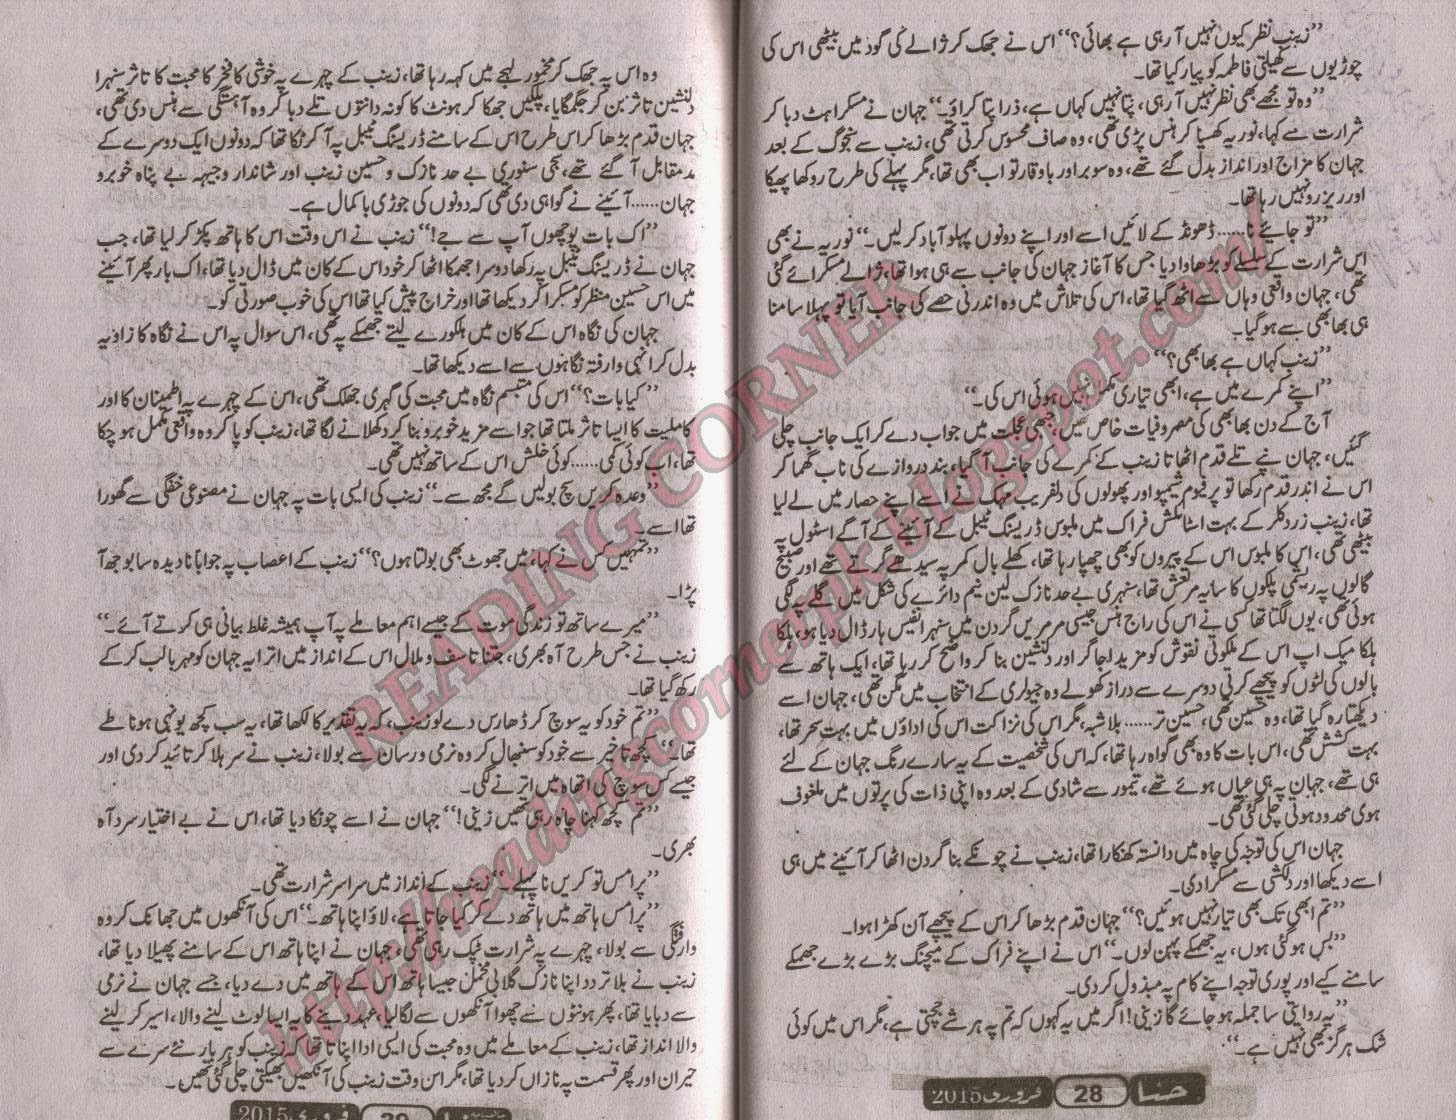 ’’زینب نظر کیوں نہیں آ رہی ہے بھائی؟‘‘ اس نے جھک کر ژالے کی گود میں بیٹھی اس کی
چوڑیوں سے کھیلتی فاطمہ کو پیار کیا تھا۔
’’وہ تو مجھے بھی نظر نہیں آ رہی، پتا نہیں کہاں ہے، ذرا پتا کراؤ۔‘‘ جہان نے مسکراہٹ دبا کر
شرارت سے کہا، نوریہ کھسیا کر ہنس پڑی تھی، وہ صاف محسوس کرتی تھی، زینب سے سنجوگ کے بعد
جہان کا مزاج اور انداز بدل گئے تھے، وہ سوبر اور باوقار تو اب بھی تھا، مگر پہلے کی طرح روکھا پھیکا
اور ریزرو نہیں رہا تھا۔
’’تو جائیے نا...... ڈھونڈ کے لائیں اسے اور اپنے دونوں پہلو آباد کر لیں۔‘‘ نوریہ نے بھی
اس شرارت کے سلسلے کو بڑھاوا دیا جس کا آغاز جہان کی جانب سے ہی ہوا تھا، ژالے مسکرائے گئی
تھی، جہان واقعی وہاں سے اٹھ گیا تھا، اس کی تلاش میں وہ اندرونی حصے کی جانب آیا تو پہلا سامنا
ہی بھابھی سے ہو گیا۔
’’زینب کہاں ہے بھابھی؟‘‘
’’اپنے کمرے میں ہے، ابھی تیاری مکمل نہیں ہوئی اس کی۔‘‘
آج کے دن بھابھی کی مصروفیات خاص تھیں، جبھی عجلت میں جواب دے کر ایک جانب چلی
گئیں، جہان نپے تلے قدم اٹھاتا زینب کے کمرے کی جانب آ گیا، بند دروازے کی ناب گھما کر
اس نے اندر قدم رکھا تو پرفیوم شیمپو اور پھولوں کی دلفریب مہک نے اسے اپنے حصار میں لے لیا
تھا، زینب زرد کلر کے بہت اسٹائلش فراک میں ملبوس ڈریسنگ ٹیبل کے آئینے کے آگے اسٹول پہ
بیٹھی تھی، اس کا ملبوس اس کے پیروں کو بھی چھپا رہا تھا، کھلے بال کمر پہ سیدھے گرتے تھے اور صبیح
گالوں پہ ریشمی پلکوں کا سایہ مرتعش تھا، سنہری بے حد نازک لین نیم دائرے کی شکل میں گلے پہ لگی
ہوئی تھی، یوں لگتا تھا کسی نے اس کی راج ہنس جیسی مرمریں گردن میں سنہرا نفیس ہار ڈال دیا ہو، ہلکا
ہلکا میک اپ اس کے ملکوتی نقوش کو مزید اجاگر اور دلنشین بنا کر واضح کر رہا تھا، ایک ہاتھ سے
بالوں کی لٹوں کو پیچھے کرتی دوسرے سے دراز کھولے وہ جیولری کے انتخاب میں مگن تھی، جہان اسے
دیکھتا رہ گیا تھا، وہ حسین تھی، حسین تر...... بلاشبہ، مگر اس کی نزاکت اس کی اداؤں میں بہت سحر تھا،
بہت کشش تھی، اس بات کا وہ بھی گواہ رہا تھا، کہ اس کی شخصیت کے یہ سارے رنگ جہان کے لئے
ہی تھے، جہان پہ ہی عیاں ہوئے تھے، تیمور سے شادی کے بعد وہ اپنی ذات کی پرتوں میں ملفوف
ہوئی محدود ہوتی چلی گئی تھی۔
جہان اس کی توجہ کی چاہ میں دانستہ کھنکارا تھا، زینب نے چونکے بنا گردن اٹھا کر آئینے میں ہی
اسے دیکھا اور دلکشی سے مسکرا دی۔
’’تم ابھی تک بھی تیار نہیں ہوئیں؟‘‘ جہان قدم بڑھا کر اس کے پیچھے آن کھڑا ہوا۔
’’بس ہو گئی ہوں، یہ جھمکے پہن لوں۔‘‘ اس نے اپنے فراک کے میچنگ بڑے بڑے جھمکے
سامنے کیے اور پوری توجہ اپنے کام پہ مبذول کر دی۔
’’یہ روایتی سا جملہ ہو جائے گا زینی! اگر میں یہ کہوں کہ تم پہ ہر شے جچتی ہے، مگر اس میں کوئی
شک ہرگز بھی نہیں ہے۔‘‘
حنا 28 فروری 2015
وہ اس پہ جھک کر مخمور لہجے میں کہہ رہا تھا، زینب کے چہرے پہ خوشی کا فخر کا محبت کا تاثر سنہرا
دلنشین تاثر بن کر جگمگایا، پلکیں جھکا کر ہونٹ کا کونہ دانتوں تلے دبا کر وہ آہستگی سے ہنس دی تھی،
جہان قدم بڑھا کر اس طرح اس کے سامنے ڈریسنگ ٹیبل پہ آ کر ٹکا تھا کہ دونوں ایک دوسرے کے
مدمقابل آ گئے تھے، سجی سنوری بے حد نازک و حسین زینب اور شاندار وجیہہ بے پناہ خوبرو
جہان...... آئینے نے گواہی دی تھی کہ دونوں کی جوڑی باکمال ہے۔
’’اک بات پوچھوں آپ سے جے!‘‘ زینب نے اس وقت اس کا ہاتھ پکڑ کر لیا تھا، جب
جہان نے ڈریسنگ ٹیبل پہ رکھا دوسرا جھمکا اٹھا کر خود اس کے کان میں ڈال دیا تھا، اک بار پھر آئینے
میں اس حسین منظر کو مسکرا کر دیکھا تھا اور خراج پیش کیا تھا اس کی خوب صورتی کو۔
جہان کی نگاہ اس کے کان میں ہلکورے لیتے جھمکے پہ تھی، اس سوال پہ اس نے نگاہ کا زاویہ
بدل کر انہی وارفتہ نگاہوں سے اسے دیکھا تھا۔
’’کیا بات؟‘‘ اس کی متبسم نگاہ میں محبت کی گہری جھلک تھی، اس کے چہرے پہ اطمینان کا اور
کاملیت کا ایسا تاثر ملتا تھا جو اسے مزید خوبرو بنا کر دکھلانے لگا تھا، زینب کو پا کر وہ واقعی مکمل ہو چکا
تھا، اب کوئی کمی...... کوئی خلش اس کے ساتھ نہیں تھی۔
’’وعدہ کریں سچ بولیں گے مجھ سے۔‘‘ زینب کی ایسی بات پہ جہان نے مصنوعی خفگی سے گھورا
تھا اسے۔
’’تمہیں کس نے کہا، میں جھوٹ بھی بولتا ہوں؟‘‘ زینب کے اعصاب پہ جواباً نادیدہ سا بوجھ آ
پڑا۔
’’میرے ساتھ تو زندگی موت کے جیسے اہم معاملے پہ آپ ہمیشہ غلط بیانی ہی کرتے آئے۔‘‘
زینب نے جس طرح آہ بھری، جتنا تاسف و ملال اس کے انداز میں اترا یہ جہان کو مہر بالب کر کے
رکھ گیا تھا۔
’’تم خود کو یہ سوچ کر ڈھارس دے لو زینب، کہ یہ تقدیر کا لکھا تھا، یہ سب کچھ یونہی ہونا طے
تھا۔‘‘ کچھ تاخیر سے خود کو سنبھال کر وہ نرمی و رسان سے بولا، زینب نے سر ہلا کر تائید کر دی اور
جیسے کس سوچ کی اتھاہ میں اترنے لگی۔
’’تم کچھ کہنا چاہ رہی تھیں زینی!‘‘ جہان نے اسے چونکا دیا تھا، اس نے بے اختیار سرد آہ
بھری۔
’’پرامس تو کریں نا پہلے۔‘‘ زینب کے انداز میں سراسر شرارت تھی۔
’’پرامس ہاتھ میں ہاتھ دے کر کیا جاتا ہے، لاؤ اپنا ہاتھ۔‘‘ اس کی آنکھوں میں جھانک کر وہ
وارفتگی سے بولا، چہرے پہ شرارت ٹپک رہی تھی، جہان نے اپنا ہاتھ اس کے سامنے پھیلا دیا تھا،
زینب نے بلا تردد اپنا نازک گلابی مخمل جیسا ہاتھ اس کے ہاتھ میں دے دیا، جسے جہان نے نرمی
سے دبایا تھا، پھر ہونٹوں سے چھوا آنکھوں سے لگا لیا، عہد دینے کا یہ ایسا لوٹ لینے والا، اسیر کر لینے
والا انداز تھا، زینب کے معاملے میں وہ محبت کی ایسی ادا اپناتا تھا کہ زینب کو ہر بار نئے سرے سے
حیران اور پھر قسمت پہ نازاں کر دیا تھا، مگر اس وقت زینب کی آنکھیں بھیگتی چلی گئی تھیں۔
فروری 2015
READING CORNER
http://readingcornerpk.blogspot.com/